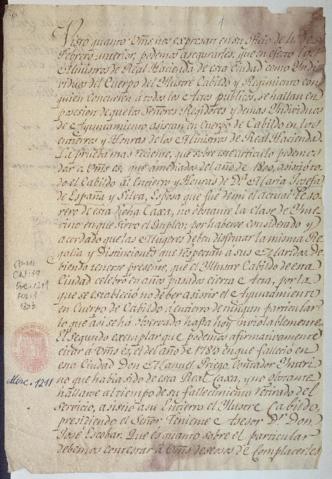 Visto quanto Vms nos expresan en su Oficio de
Febrero anterior, podemos asegurarles, que en efecto los
Ministros de Real Hacienda de esta Ciudad como Yndi-
viduos del Cuerpo del Ylustre Cabildo y Regimiento con
quien concurren á todos los Actos publicos, se hallan en
posesion de que los Señores Regidores y demas Yndividuos
de Ayuntamiento asistan en Cuerpo de Cabildo á los
Entierros y Honras de los Ministros de Real Hacienda.
La prueba mas reciente, que sobre este articulo podemos
dar á Vms es, que á mediados del año de 1800, asistió to-
do el Cabildo al Entierro y Honras de Dª Maria Josefa
de España y Silva, Esposa que fué del actual Teso-
rero de esta Real Caxa, no obstante la clase de
en que sirve el Empleo, por haberse considerado y
acordado que las Mugeres deben disfrutar la misma Re-
galia y Distinciones que respectan á sus Maridos, de-
biendo tenerse presente, que el Ylustre Cabildo de esta
Ciudad celebró en años pasados cierta Acta, por la
que se estableció no deber asistir el Ayuntamiento
en Cuerpo de Cabildo, á entierro de ningun particular
lo que asi se ha observado hasta hoy inviolablemente.
El segundo exemplar que podemos afirmativamente
citar á Vms es, el del año de 1789 en que falleció en
esta Ciudad Don Manuel Contador
que habia sido de esta Real Caxa, y no obstante
hallarse al tiempo de su fallecimiento retirado del
Servicio, asistió á su Entierro el Ylustre Cabildo,
presidiendo el Señor Teniente Asesor Dr. Don
José Escobar. Que es quanto sobre el particular
debemos contestar á Vms deseosos de complacerles
1803
1211